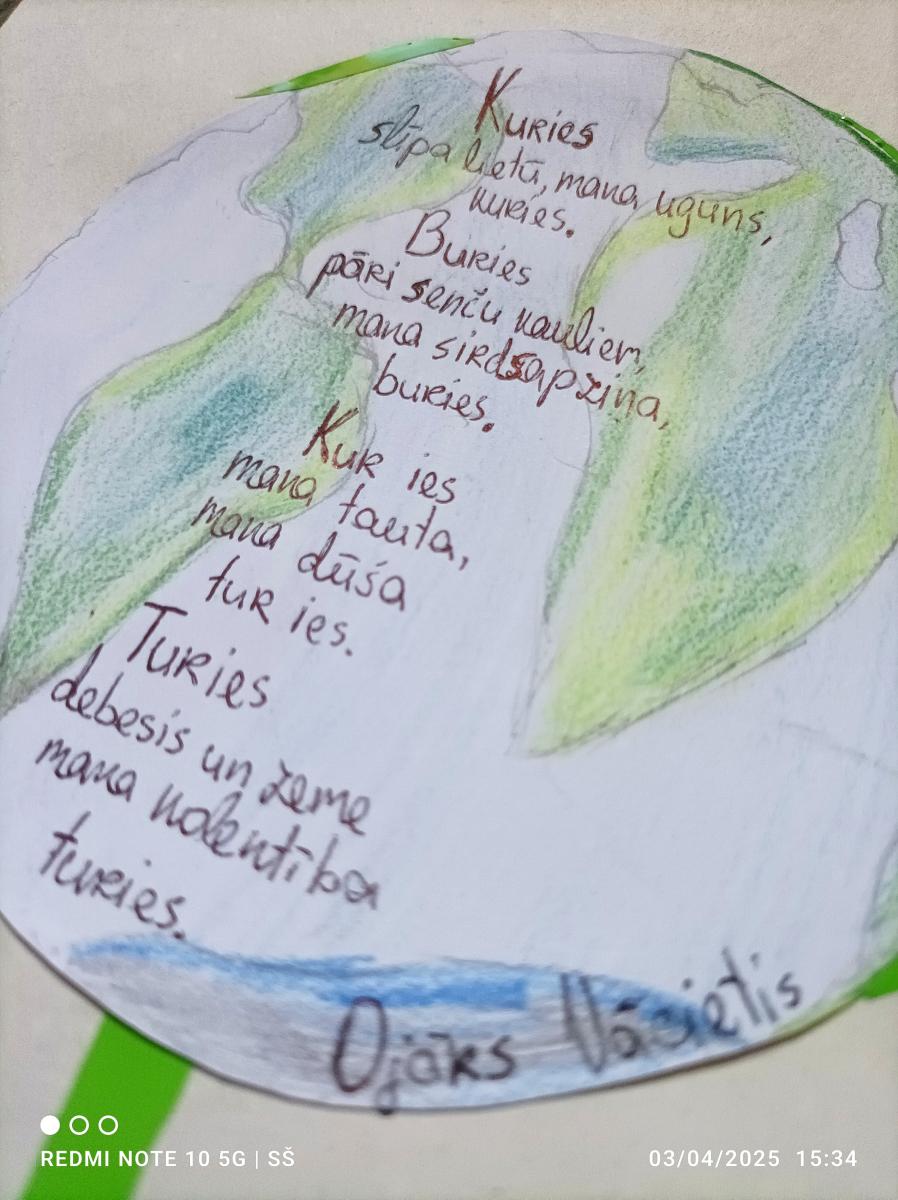 Kuries
slīpa lietū, mana uguns,
kuries.
Buries
pāri senču kauliem,
mana sirdsapziņa,
buries.
Kur ies
mana tauta,
mana dūša
tur ies.
Turies
debesis un zeme
mana nolentība
turies.
Ojārs Vācietis
REDMI NOTE 10 5G | SŠ
03/04/2025 15:34